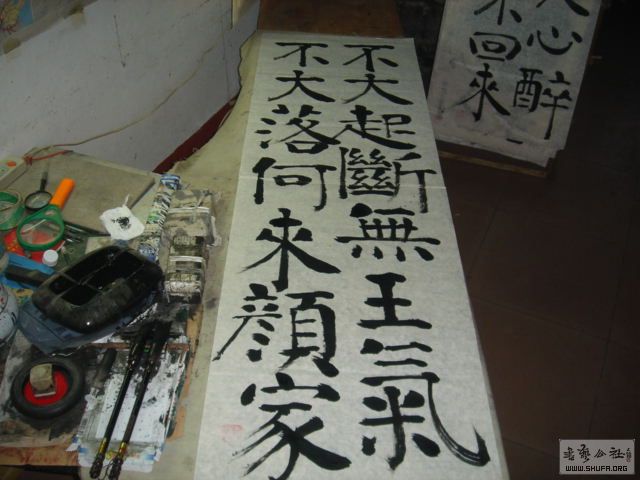 不大起斷無王氣
不大落何來顏家
心醉
回來
書藝公社
WWW.SHUFA.ORG